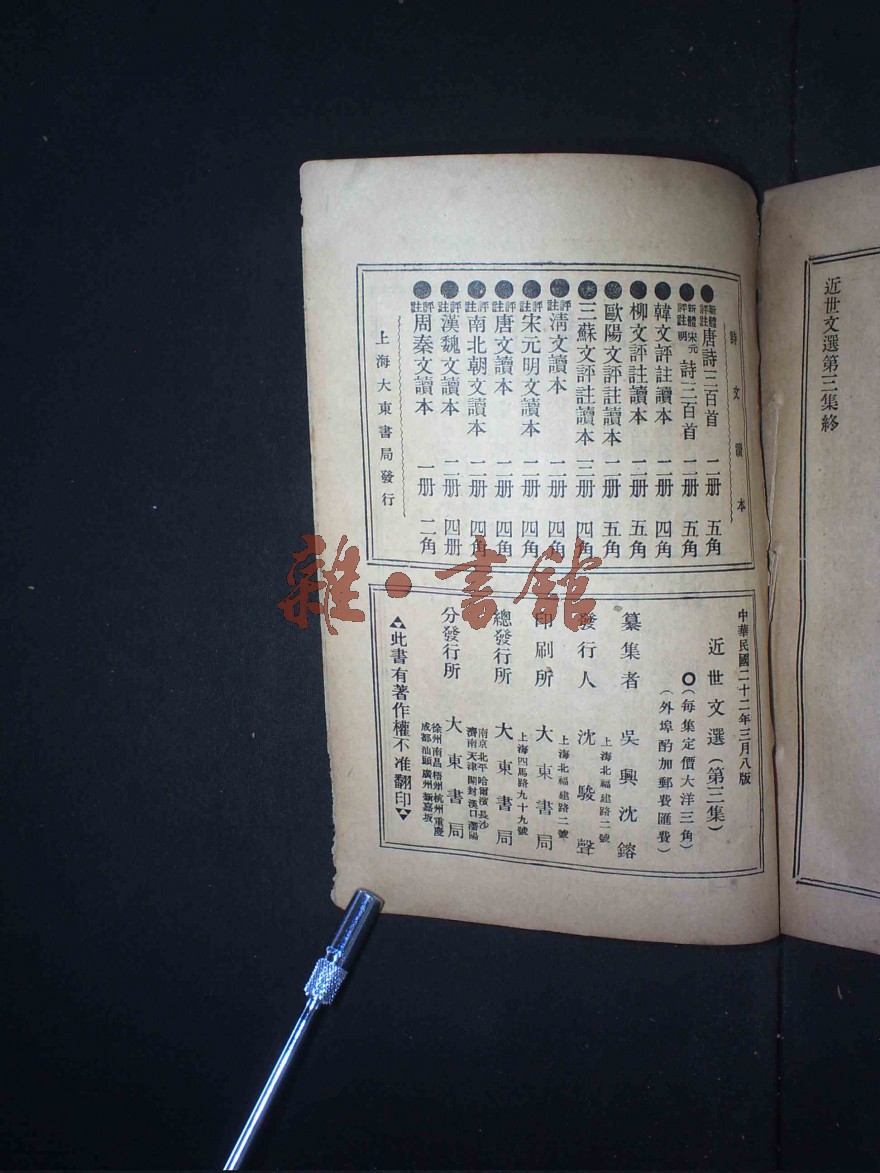 近世文選第三集終
詩文讀本
●新體評註唐詩三百首 二册 五角
●新體評註宋元明詩三百首 二册 五角
●韓文評註讀本 二册 四角
●柳文評註讀本 二册 五角
●歐陽文評註讀本 二册 五角
●三蘇文評註讀本 三册 四角
●評註清文讀本 二册 四角
●評註宋元明文讀本 二册 四角
●評註唐文讀本 二册 四角
●評註南北朝文讀本 二册 四角
●評註漢魏文讀本 二册 四册
●評註周秦文讀本 一册 二角
上海大東書局發行
中華民國二十二年三月八版
近世文選（第三集）
（每集定價大洋三角）
（外埠酌加郵費匯費）
纂集者 吳興沈鎔
上海北福建路二號
發行人 沈駿聲
上海北福建路二號
印刷所 大東書局
上海四馬路九十九號
總發行所 大東書局
南京北平哈爾濱長沙
濟南天津開封漢口瀋陽
分發行所 大東書局
徐州南昌梧州杭州重慶
成都汕頭廣州新嘉坡
此書有著作權不准翻印
雜·書館